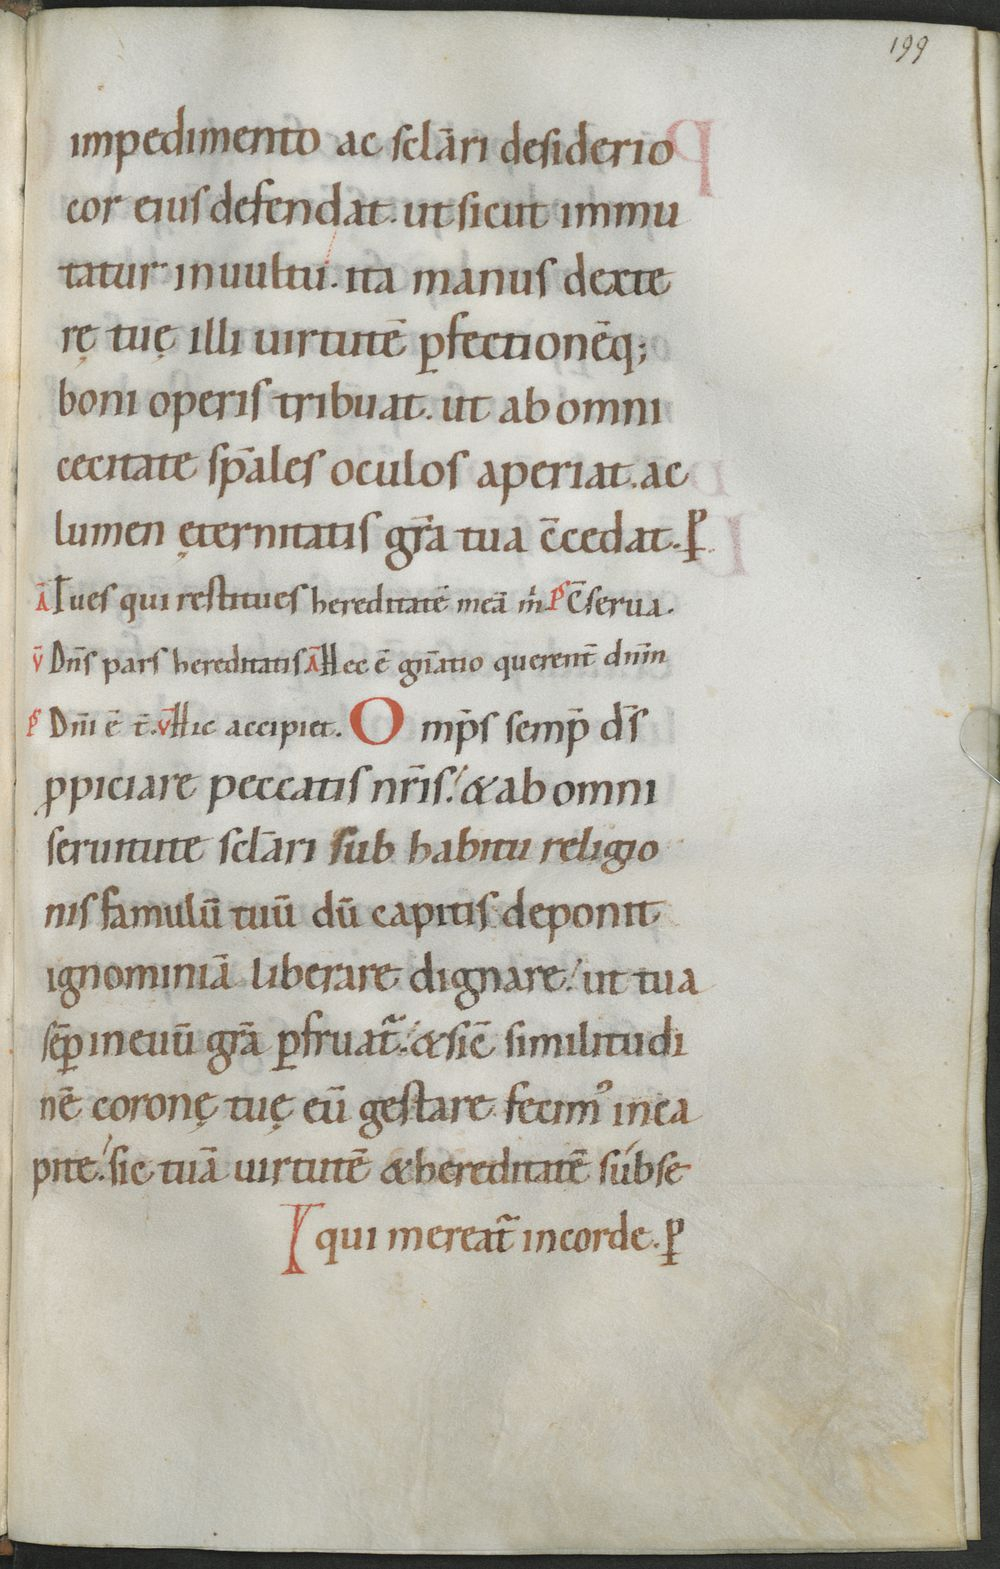 199
impedimento ac sclāri desiderio
cor eius defendat. ut sicut immu
tatur in uultu. ita manus dexte
rę tuę illi uirtutē ꝑfectionēq;
boni operis tribuat. ut ab omni
cecitate sp̄ales oculos aperiat. ac
lumen ęternitatis gr̄a tua c̄cedat. ꝑ
Ā Tu es qui restitues hereditatē meā m̓ Ps C̄serua.
v̄ Dn̄s pars hereditatis Ā Hec ē gn̄atio querent̄ dn̄m
Ps Dn̄i ē t̄. v̄ Hic accipiet. O mp̄s semp̄ d̄s
ꝓpiciare peccatis nr̄is. & ab omni
seruitute sclāri sub habitu religio
nis famulū tuū dū capitis deponit
ignominiā liberare dignare. ut tua
sēꝑ in euū gr̄a ꝑfruat̄. & sic̄ similitudi
nē coronę tuę eū gestare fecim᾽ in ca
pite. sic tuā uirtutē & hereditatē subse
qui mereat̄ in corde. ꝑ